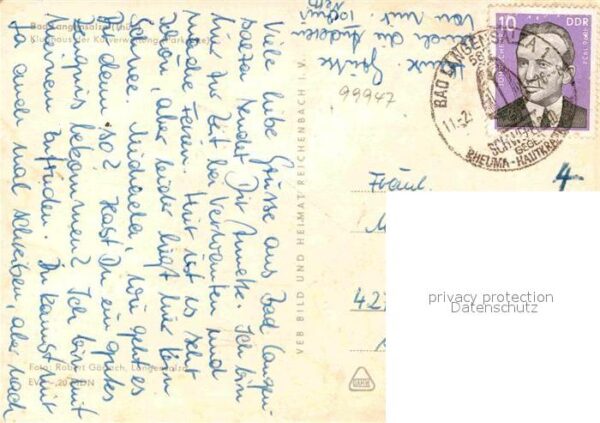 Bad Langensalza (Thür.)
Klubhaus der Kurverwaltung (Parkseite)
Viele liebe Grüsse aus Bad Langen-
salza sendet Dir Annette. Ich bin
hier zur Zeit bei Verwanten und
mache Ferien. Hier ist es sehr
schön, aber leider liegt hier kein
Schnee. Michaela, wie geht es
Dir denn so? Hast Du ein gutes
Zeugnis bekommen? Ich kann mit
meinem zufrieden. Du kannst mir
ja auch mal schreiben, aber nach
Grüsse
auch die anderen
von mir. 10
99947
VEB BILD UND HEIMAT REICHENBACH I. V.
Foto: Robert Görlach, Langensalza
EVP -,20 MDN
10 DDR
BAD LANGENSALZA
11.-2
SCHWEFELBAD
GEGEN
RHEUMA - HAUTKRANKH
Fräul.
M
427
4
privacy protection
Datenschutz